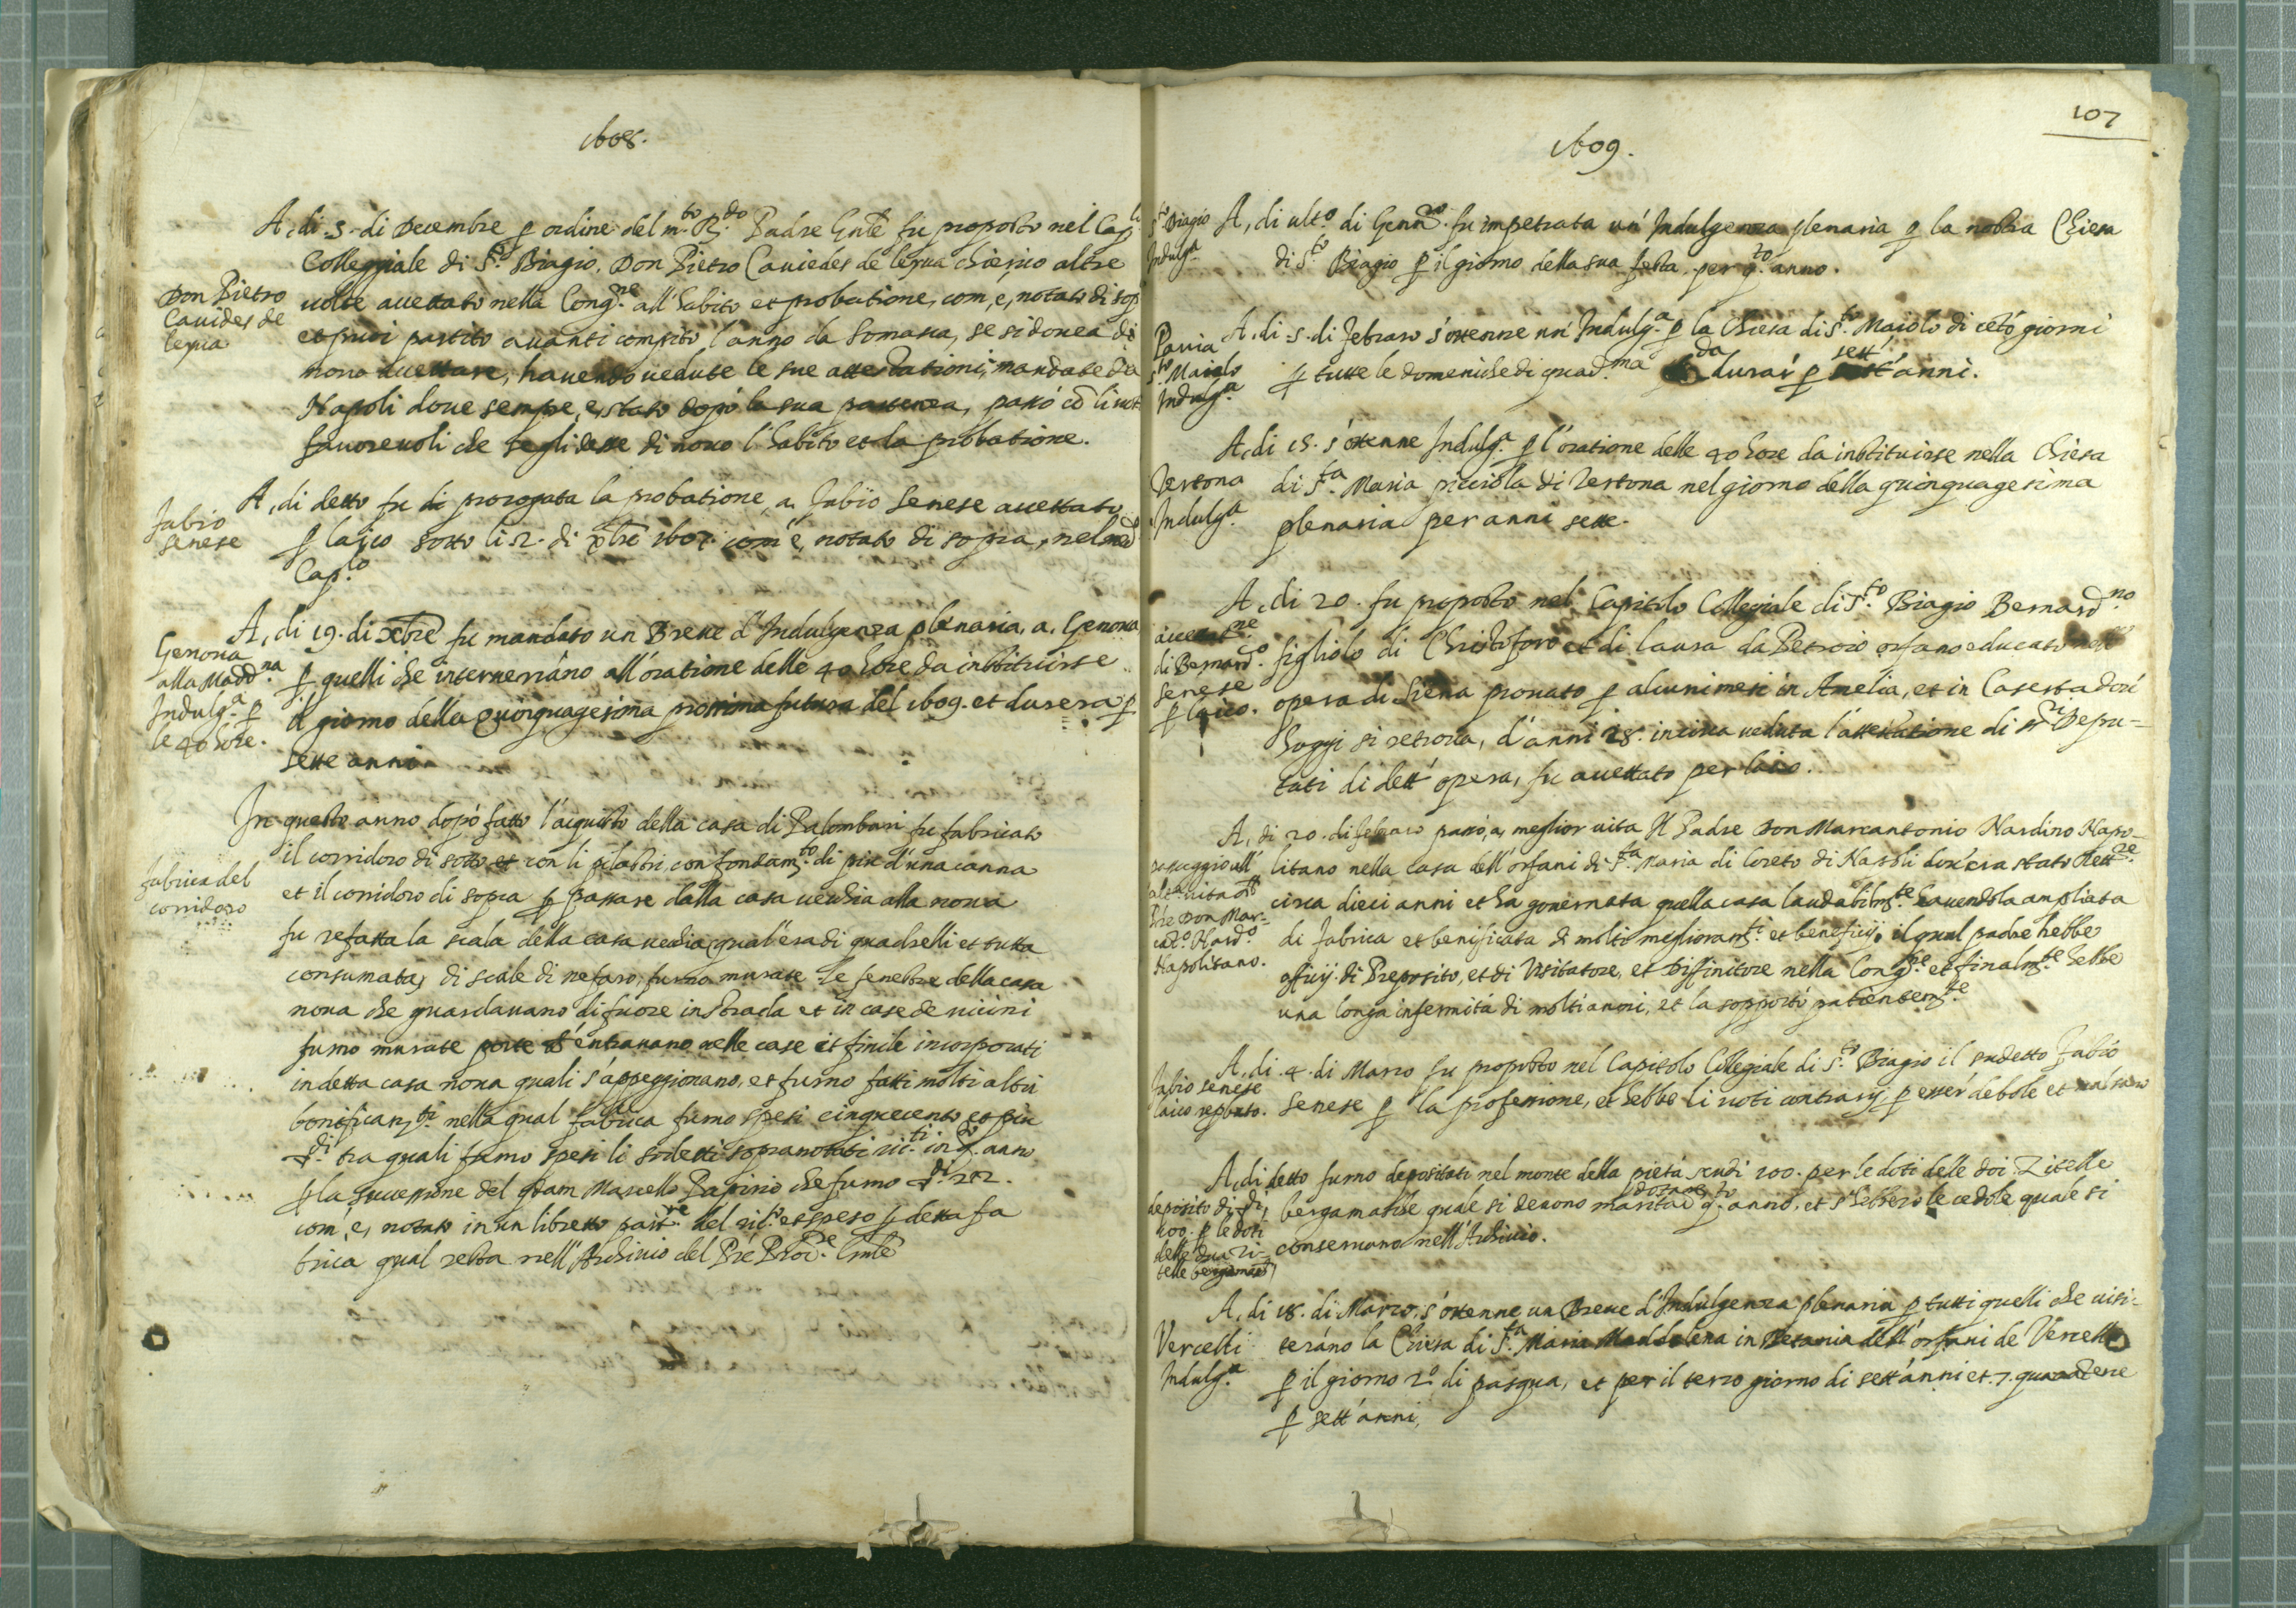 1608.
A, di .5. di Decembre ꝑ ordine del m.to R.do Padre Gnle fu proposto nel Cap.
Collegiale di S.to Biagio, Don Pietro Cauiedes de lerma chierico altre
Don Pietro
Cauides de
lerma
uolte accettato nella Cong.ne all'habito et probatione, com, e, notato di sop.
et puoi partito auanti compito l'anno da Somasca, se si douea di
nouo accettare, hauendo uedute le sue attestationi, mandate da
Napoli doue sempre, e, stato dopò la sua partenza, passò cō li uoti
fauoreuoli che se gli desse di nouo l'habito et la probatione.
Fabio
senese
A, di detto fu di prorogata la probatione, a, Fabio Senese accettato
ꝑ laico sotto li 2. di xbre 1607 com' è, notato di sopra, nel med.
Cap.lo
Genoua
alla Madd.na
Indulg.a ꝑ
le 40 hore.
A, di 19. di xbre fu mandato un Breue d'Indulgenza plenaria, a, Genoua
ꝑ quelli che interuerráno all'oratione delle 40 hore da instituirse
il giorno della Quinquagesima prossima futura del 1609. et durera ꝑ
sette anni
fabrica del
corridoro
In questo anno dopò fatto l'acquisto della casa di Palombari fu fabricato
il corridoro di sotto et con li pilastri, con fondam.to di piu d'una canna
et il corridoro di sopra ꝑ passare dalla casa uecchia alla noua
fu refatta la scala della casa uechia, qual'era di quadrelli et tutta
consumata, di scale di , furno murate le fenestre della casa
noua che guardauano di fuore in strada et in case de uicini
furno murate porte ch' entrauano nelle case et finile incorporati
in detta casa noua quali s'appeggiorano, et furno fatti molti altri
bonificam.ti nella qual fabrica furno spesi cinquecento et piu
tra quali furno spesi li sodetti sopranotati in q.to anno
ꝑ la successione del qdam Marcello Papirio che furno 212.
com, e, notato in un libretto part.re del ric.to et speso ꝑ detta fa
brica qual resta nell'Archiuio del Pre Proc.re Gnle
107
1609.
S.to Biagio
Indulg.a
A, di ult.o di Genn.ro fu impetrata un'Indulgenza plenaria ꝑ la nostra Chiesa
di S.to Biagio ꝑ il giorno della sua festa, per q.to anno.
Pauia
S.to Maiolo
Indulg.a
A, di .5. di Febraro s'ottenne un'Indulg.a ꝑ la Chiesa di S.to Maiolo di cētó giorni
ꝑ tutte le domeniche di quad.ma da durar' ꝑ sett' anni.
Tertona
Indulg.a
A, di 15. s'ottenne Indulg.a ꝑ l'oratione delle 40 hore da instituirse nella Chiesa
di S.ta Maria picciola di Tertona nel giorno della quinquagesima
plenaria per anni sette.
accettat.ne
di Bernard.o
Senese
ꝑ laico.
A, di 20. fu proposto nel Capitolo Collegiale di S.to Biagio Bernard.no
figliolo di Christoforo et di laura da Petroio orfano educato nell'
opera di Siena prouato ꝑ alcuni mesi in Amelia, et in Caserta dou'
hoggi si retroua, d'anni 28. in circa ueduta l'attestatione di Sr.i Depu-
tati di dett' opera, fu accettato per laico.
passaggio all'
alt.a uita del
Pre Don Mar-
c'Ant.o Nard.o
Napolitano.
A, di 20. di febraro passó, a, meglior uita Il Padre Don Marcantonio Nardino Napo-
litano nella casa dell'orfani di S.ta Maria di loreto di Napoli dou'era stato Rett.re
circa dieci anni et ha gouernata quella casa laudabilm.te hauendola ampliata
di fabrica et benificata di molti meglioram.ti et beneficij, il qual padre hebbe
officij di Preposito, et di Visitatore, et Diffinitore nella Cong.ne et finalm.te hebbe
una longa infermitá di molti anni, et la sopportò patientem.te
Fabio senese
laico reprobato.
A, di .4. di Marzo fu proposto nel Capitolo Collegiale di S.to Biagio il sudetto Fabio
Senese ꝑ la professione, et hebbe li uoti contrarij, ꝑ esser' debole et mal sano
deposito di
200. ꝑ le doti
delle due Zi-
telle bergamas.
A, di detto furno depositati nel monte della pietá scudi 200. per le doti delle doi Zitelle
bergamasche quale si deuono maritar' q.to anno, et s'hebbero le cedole quale si
dotar
conseruano nell'Archiuio.
Vercelli
Indulg.a
A, di 18. di Marzo, s'ottenne un Breue d'Indulgenza plenaria ꝑ tutti quelli che uisi-
teráno la Chiesa di S.ta Maria Maddalena in Betania dell'orfani de Vercelli
ꝑ il giorno 2.o di pasqua, et per il terzo giorno di sett'anni et .7. quarátene
ꝑ sett'anni,